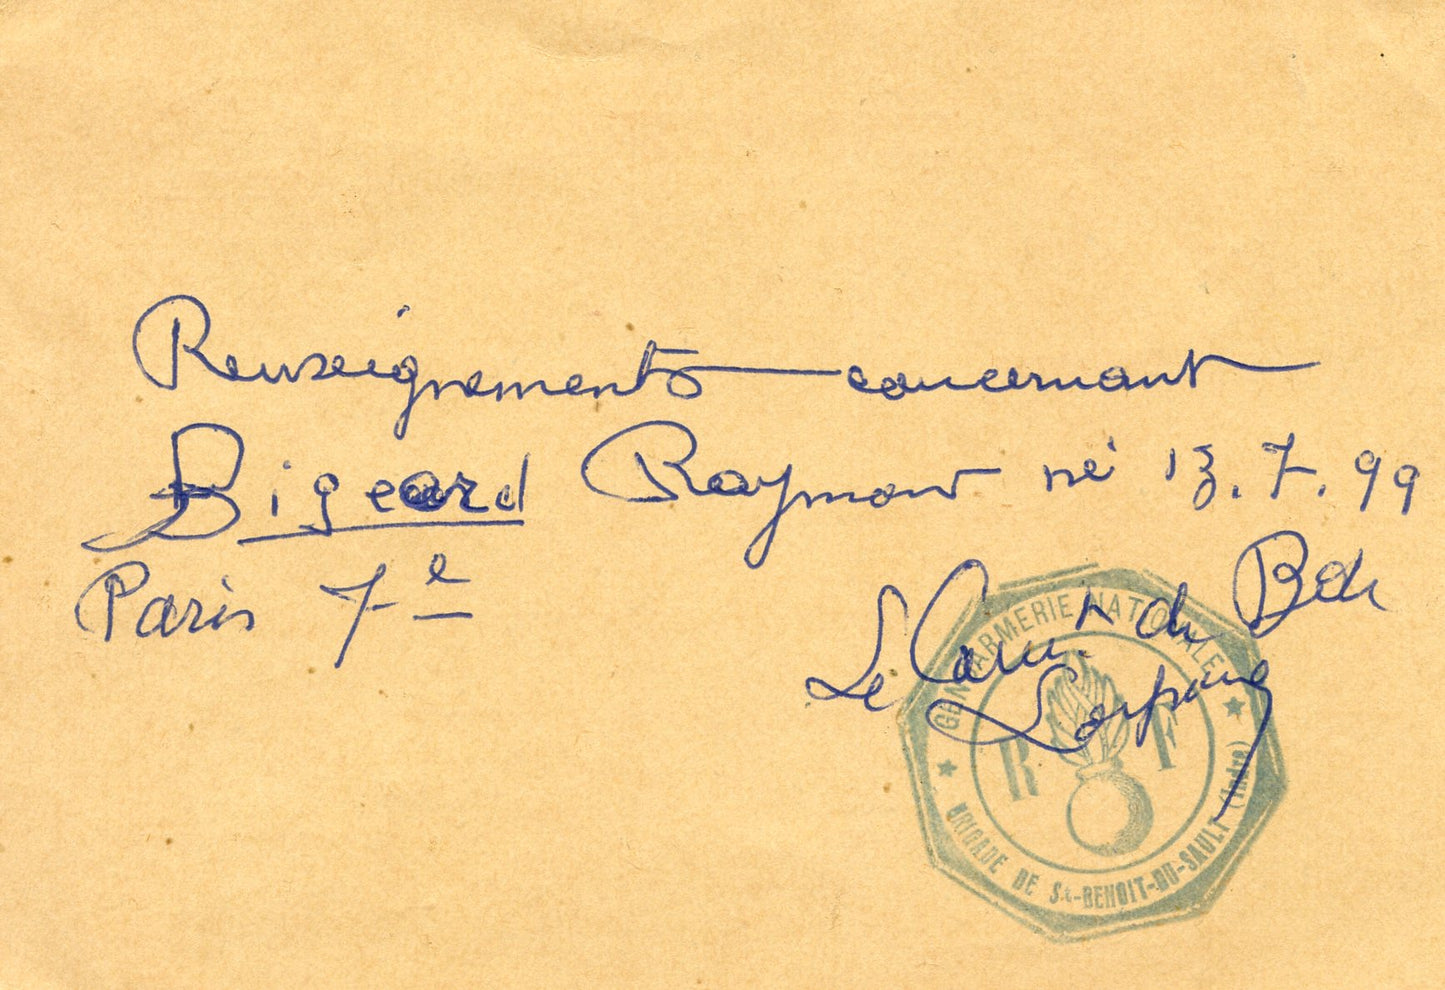 Renseignements concernant
Bigeard Raymond né 13.7.99
Paris 7e
Le Comt. de Bde
GENDARMERIE NATIONALE
R F
BRIGADE DE St-BENOIT-DU-SAULT (Indre)